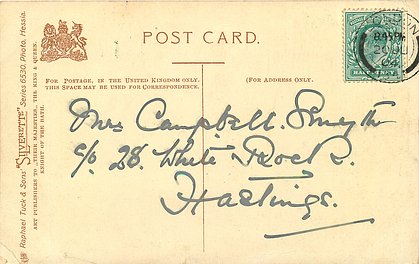 POST CARD.
FOR POSTAGE, IN THE UNITED KINGDOM ONLY,
THIS SPACE MAY BE USED FOR CORRESPONDENCE.
(FOR ADDRESS ONLY.)
Raphael Tuck & Sons' "SILVERETTE" Series 6530. Photo, Hessia.
ART PUBLISHERS TO THEIR MAJESTIES, THE KING & QUEEN.
KNIGHT OF THE BATH.
HALFPENNY
Mrs Campbell. Smyth
c/o 28. White Rock.
Hastings.